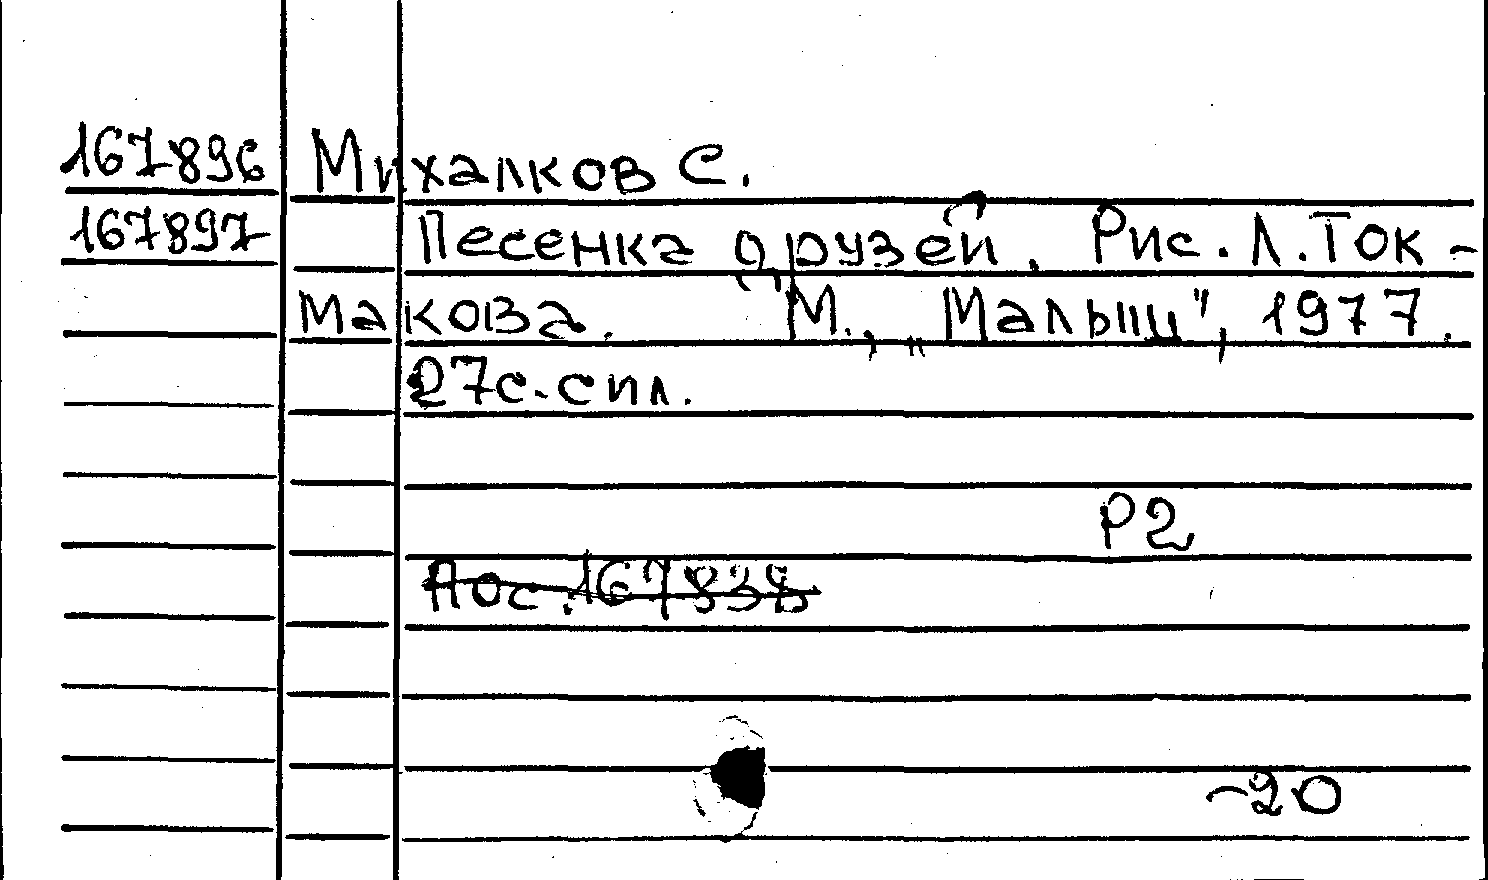 167896 Михалков С.
167897 Песенка друзей. Рис. Л. Ток-
макова. М., „Малыш", 1977.
27с. с ил.
Р2
-20